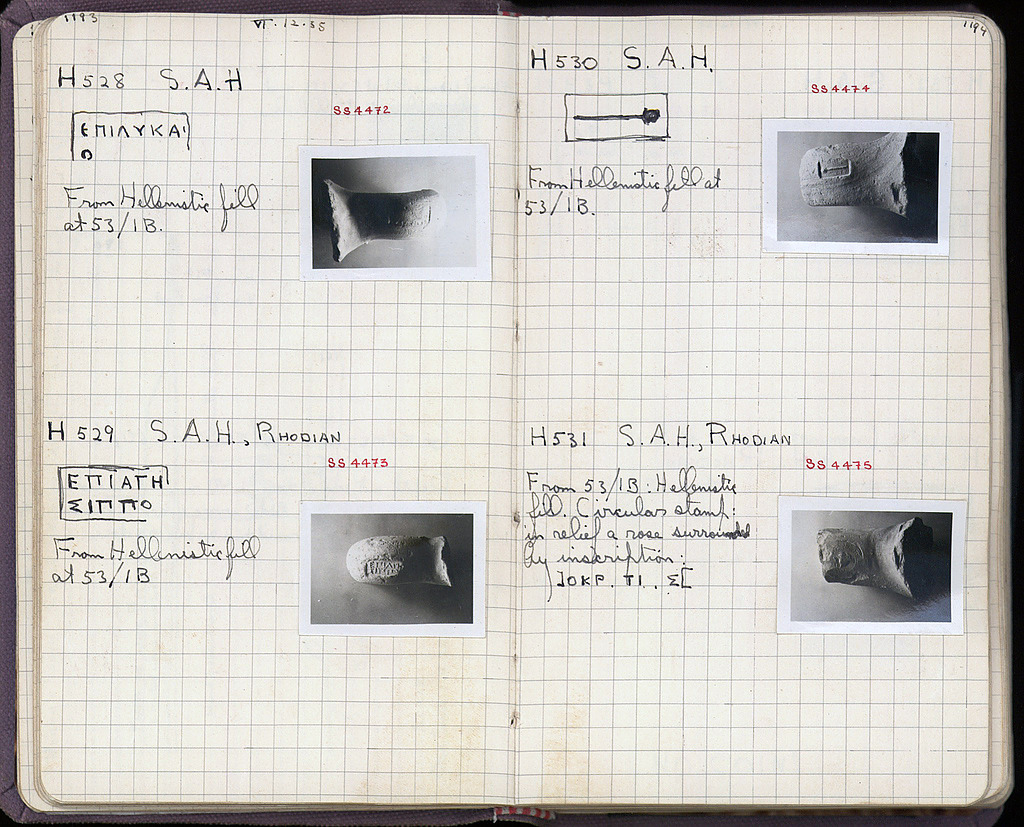 1193
VI.12.55
H 528 S.A.H
SS 4472
ΕΠΙΛΥΚΑΙ
Ο
From Hellenistic fill
at 53/1B.
H 529 S.A.H., RHODIAN
SS 4473
ΕΠΙΑΓΗ
ΣΙΠΠΟ
From Hellenistic fill
at 53/1B
1194
H 530 S.A.H.
SS 4474
From Hellenistic fill at
53/1B.
H 531 S.A.H., RHODIAN
SS 4475
From 53/1B: Hellenistic
fill. Circular stamp:
in relief a rose surrounded
by inscription:
]ΟΚΡ. ΤΙ.. Σ[